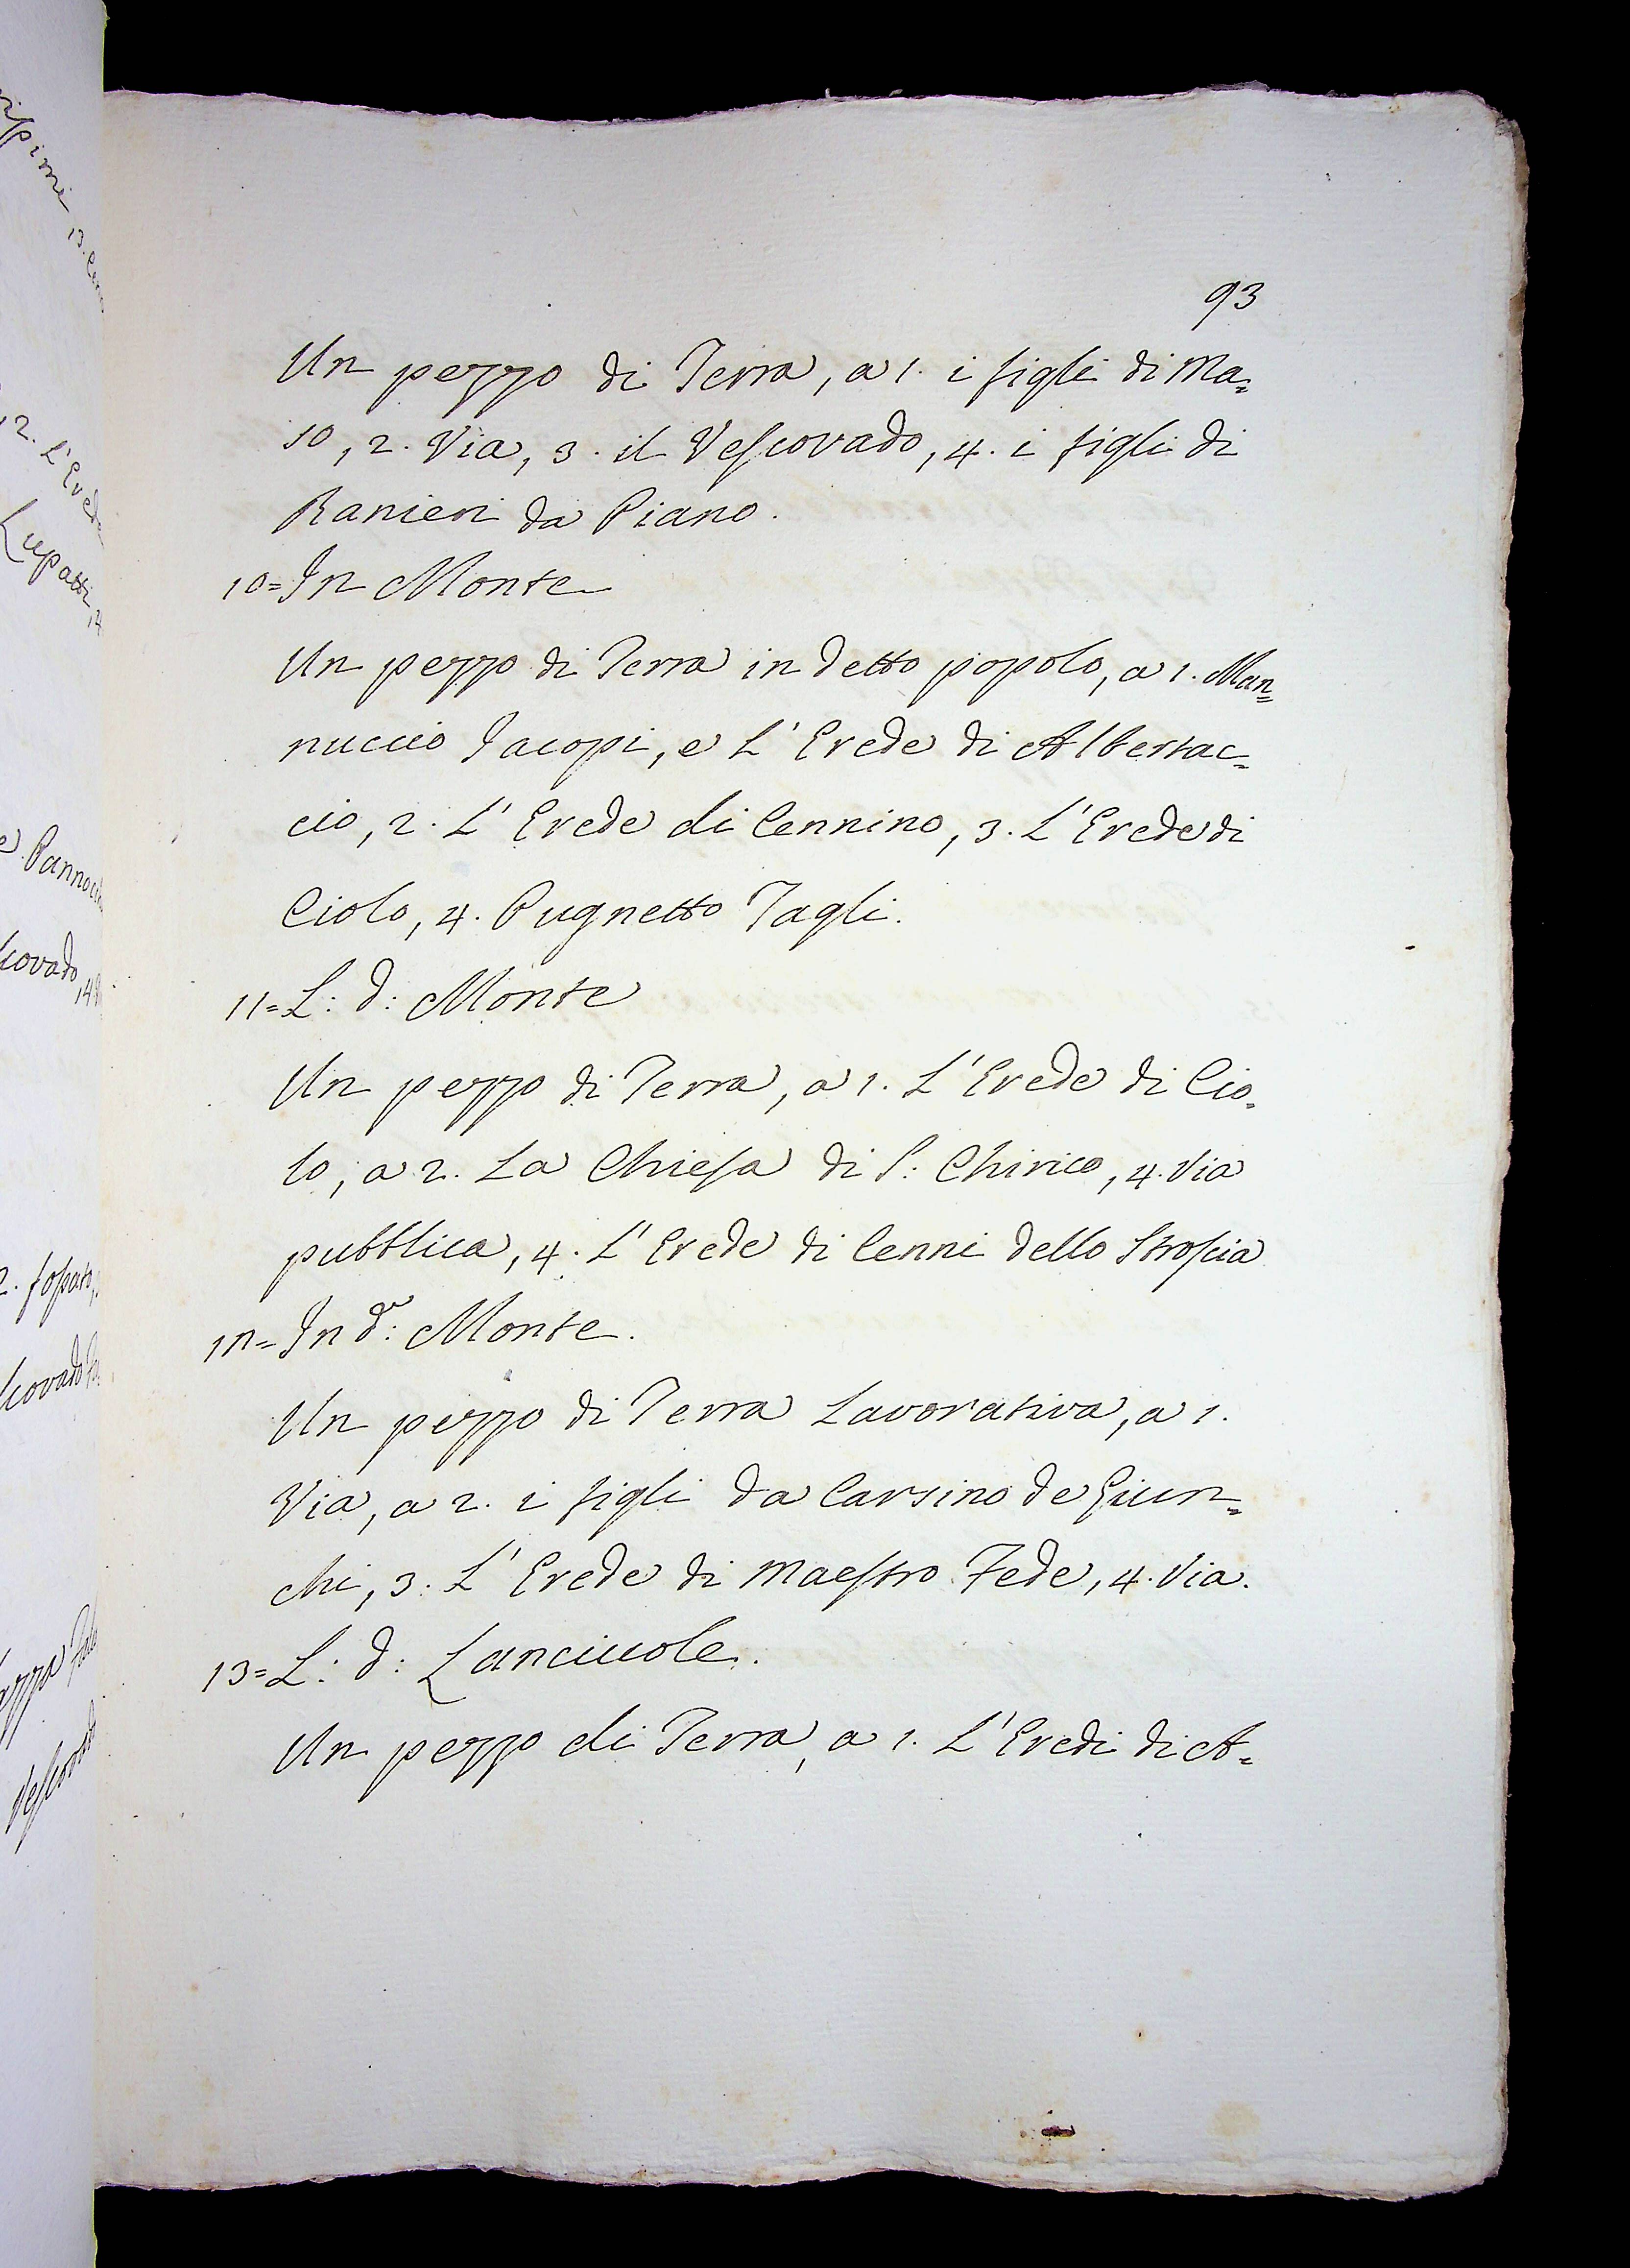 93
Un pezzo di Terra, a 1. i figli di Ma=
so, 2. Via, 3. il Vescovado, 4. i figli di
Ranieri da Piano.
10=In Monte
Un pezzo di Terra in detto popolo, a 1. Man=
nuccio Jacopi, e L'Erede di Albertac=
cio, 2. L'Erede di Cennino, 3. L'Erede di
Ciolo, 4. Pugnetto Tagli.
11=L: d: Monte
Un pezzo di Terra, a 1. L'Erede di Cio=
lo, a 2. La Chiesa di S: Chirico, 4. Via
pubblica, 4. L'Erede di Cenni dello Stroscia
12=In d.º: Monte.
Un pezzo di Terra Lavorativa, a 1.
Via, a 2. i figli da Carsino de Giun=
chi, 3. L'Erede di Maestro Fede, 4. Via.
13=L: d: Lanciuole.
Un pezzo di Terra, a 1. L'Eredi di A=